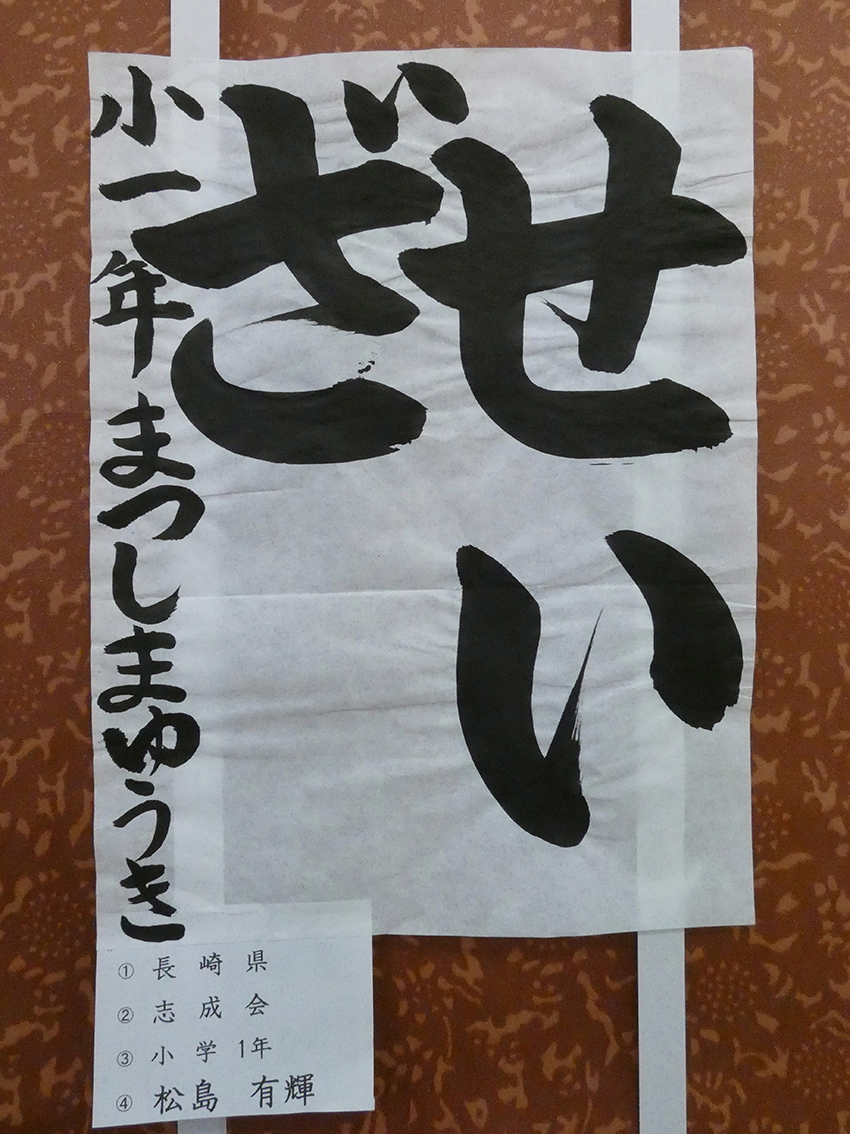 せい
ざ
小一年まつしまゆうき
① 長崎県
② 志成会
③ 小学1年
④ 松島 有輝